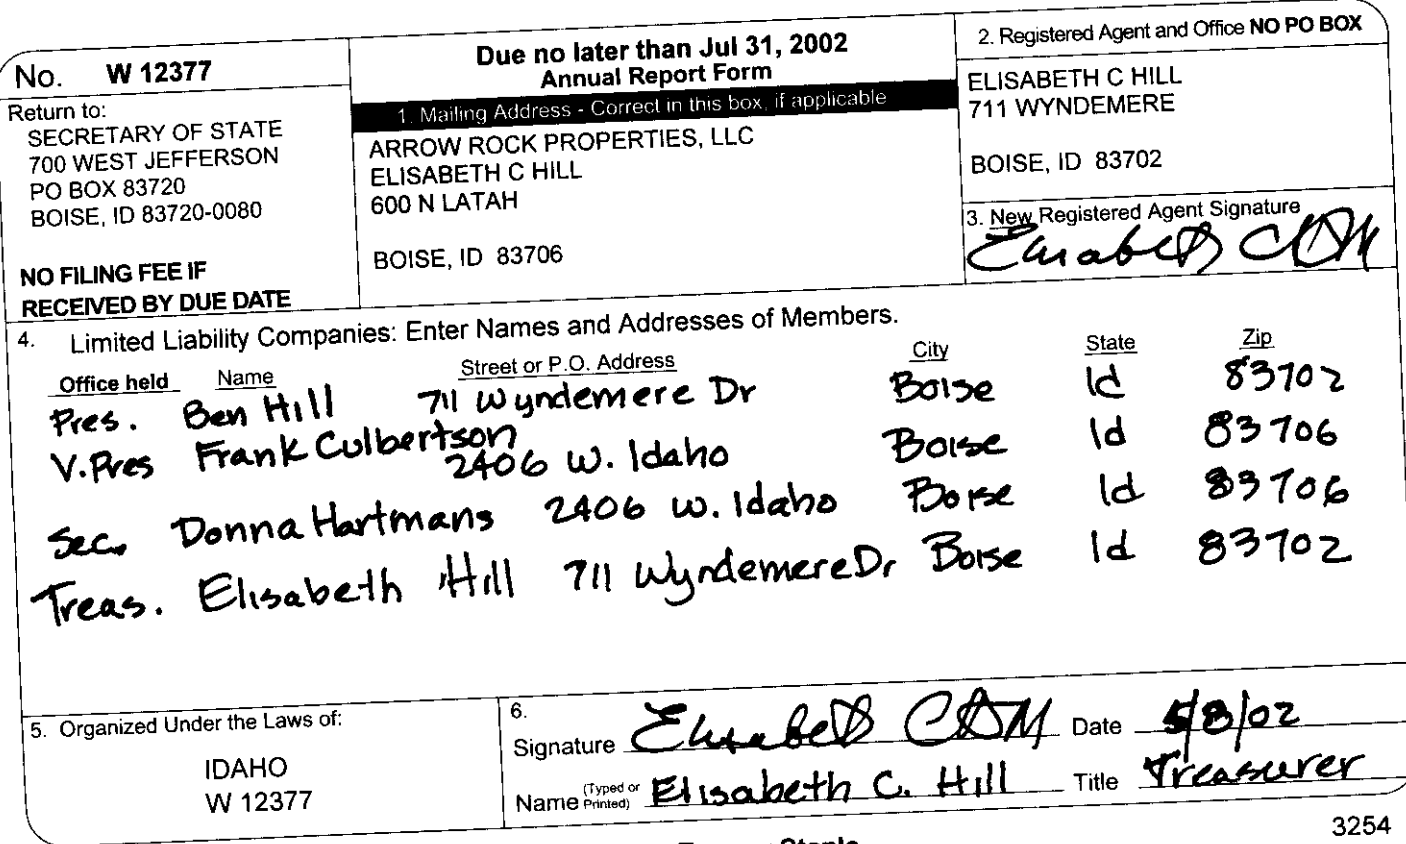 No. W 12377
Return to:
SECRETARY OF STATE
700 WEST JEFFERSON
PO BOX 83720
BOISE, ID 83720-0080
NO FILING FEE IF
RECEIVED BY DUE DATE
Due no later than Jul 31, 2002
Annual Report Form
1. Mailing Address - Correct in this box, if applicable
ARROW ROCK PROPERTIES, LLC
ELISABETH C HILL
600 N LATAH
BOISE, ID 83706
2. Registered Agent and Office NO PO BOX
ELISABETH C HILL
711 WYNDEMERE
BOISE, ID 83702
3. New Registered Agent Signature
Elisabeth C Hill
4. Limited Liability Companies: Enter Names and Addresses of Members.
Office held Name Street or P.O. Address City State Zip
Pres. Ben Hill 711 Wyndemere Dr Boise Id 83702
V. Pres Frank Culbertson 2406 W. Idaho Boise Id 83706
Sec. Donna Hartmans 2406 W. Idaho Boise Id 83706
Treas. Elisabeth Hill 711 Wyndemere Dr Boise Id 83702
5. Organized Under the Laws of:
IDAHO
W 12377
6.
Signature Elisabeth C Hill Date 5/8/02
Name (Typed or Printed) Elisabeth C. Hill Title Treasurer
3254